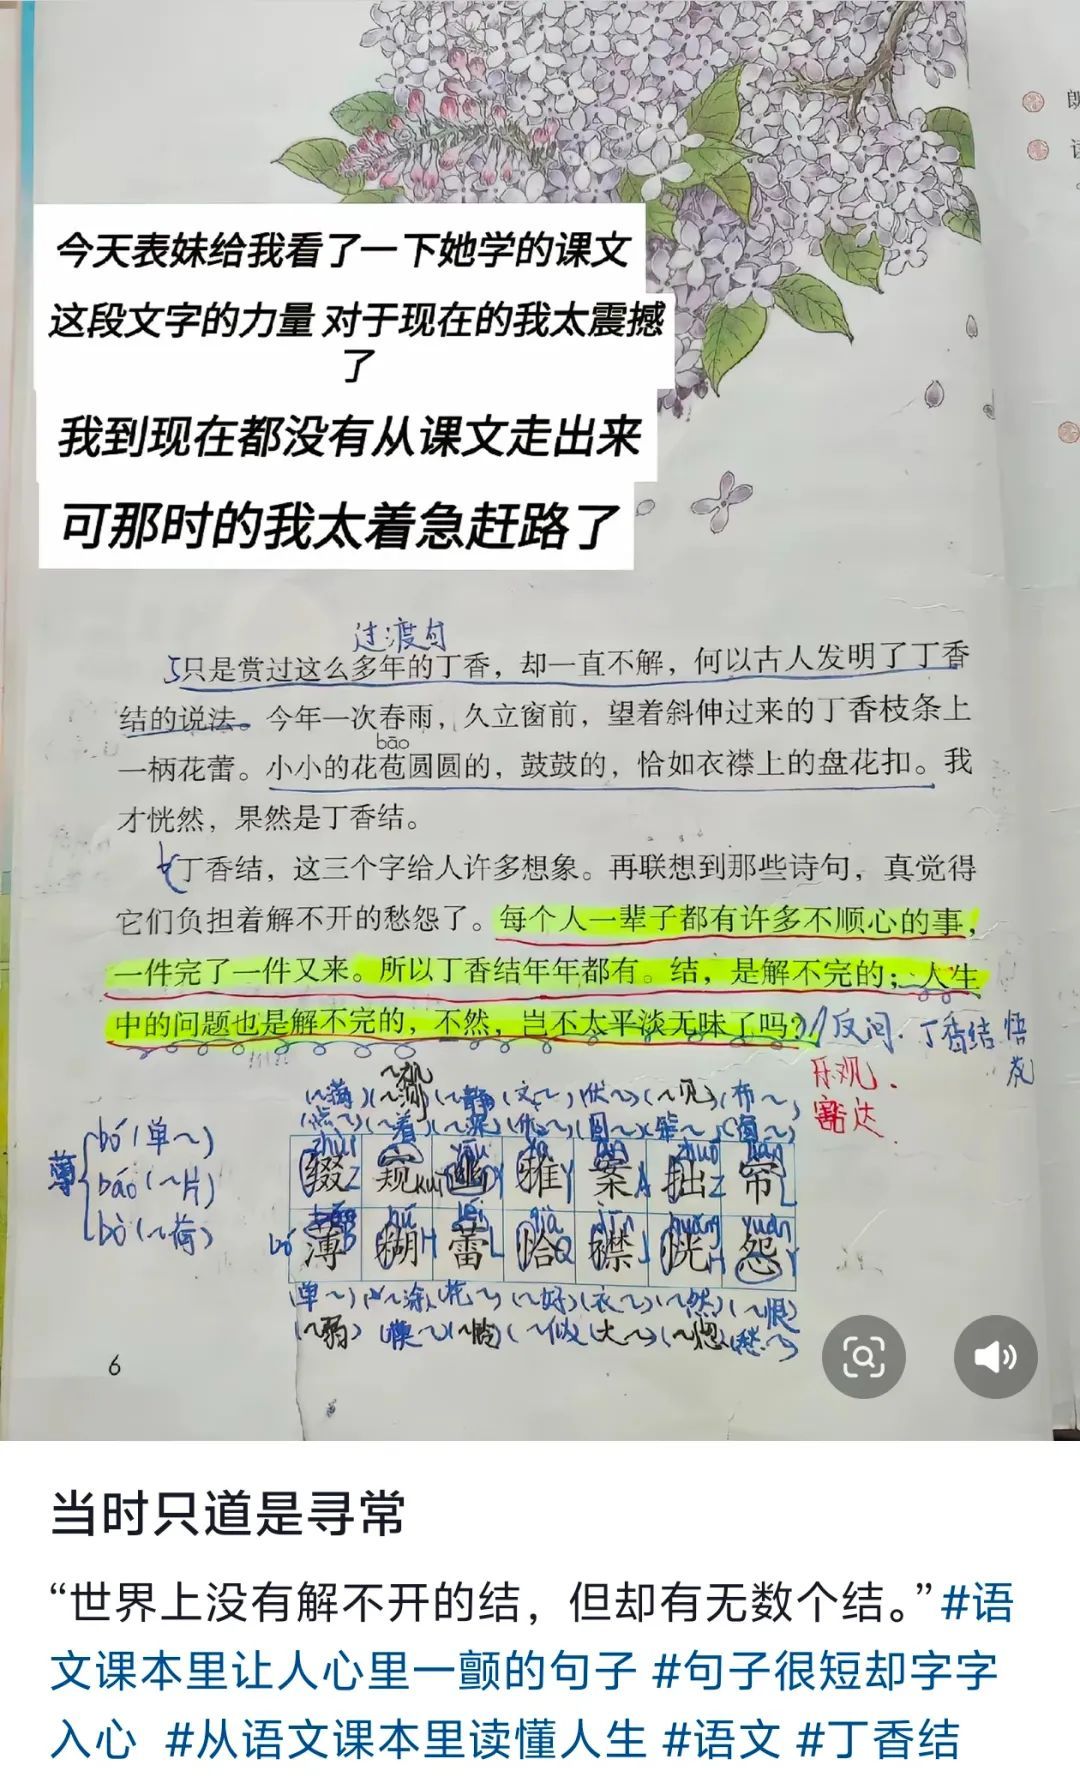 今天表妹给我看了一下她学的课文
这段文字的力量 对于现在的我太震撼
了
我到现在都没有从课文走出来
可那时的我太着急赶路了
过渡句
只是赏过这么多年的丁香，却一直不解，何以古人发明了丁香
结的说法。今年一次春雨，久立窗前，望着斜伸过来的丁香枝条上
一柄花蕾。小小的花苞圆圆的，鼓鼓的，恰如衣襟上的盘花扣。我
bāo
才恍然，果然是丁香结。
丁香结，这三个字给人许多想象。再联想到那些诗句，真觉得
它们负担着解不开的愁怨了。每个人一辈子都有许多不顺心的事，
一件完了一件又来。所以丁香结年年都有。结，是解不完的；人生
中的问题也是解不完的，不然，岂不太平淡无味了吗？
反问.丁香结 悟
乐观.
豁达.
薄
bó(单~)
báo(~片)
bò(~荷)
缀 窥 幽 雅 案 拙 帘
薄 糊 蕾 恰 襟 恍 怨
(单~) (~涂) (花~) (~好) (衣~) (~然) (~恨)
(~弱) (模~) (~似) (大~) (~惚) (愁~)
6
当时只道是寻常
“世界上没有解不开的结，但却有无数个结。”#语
文课本里让人心里一颤的句子 #句子很短却字字
入心 #从语文课本里读懂人生 #语文 #丁香结